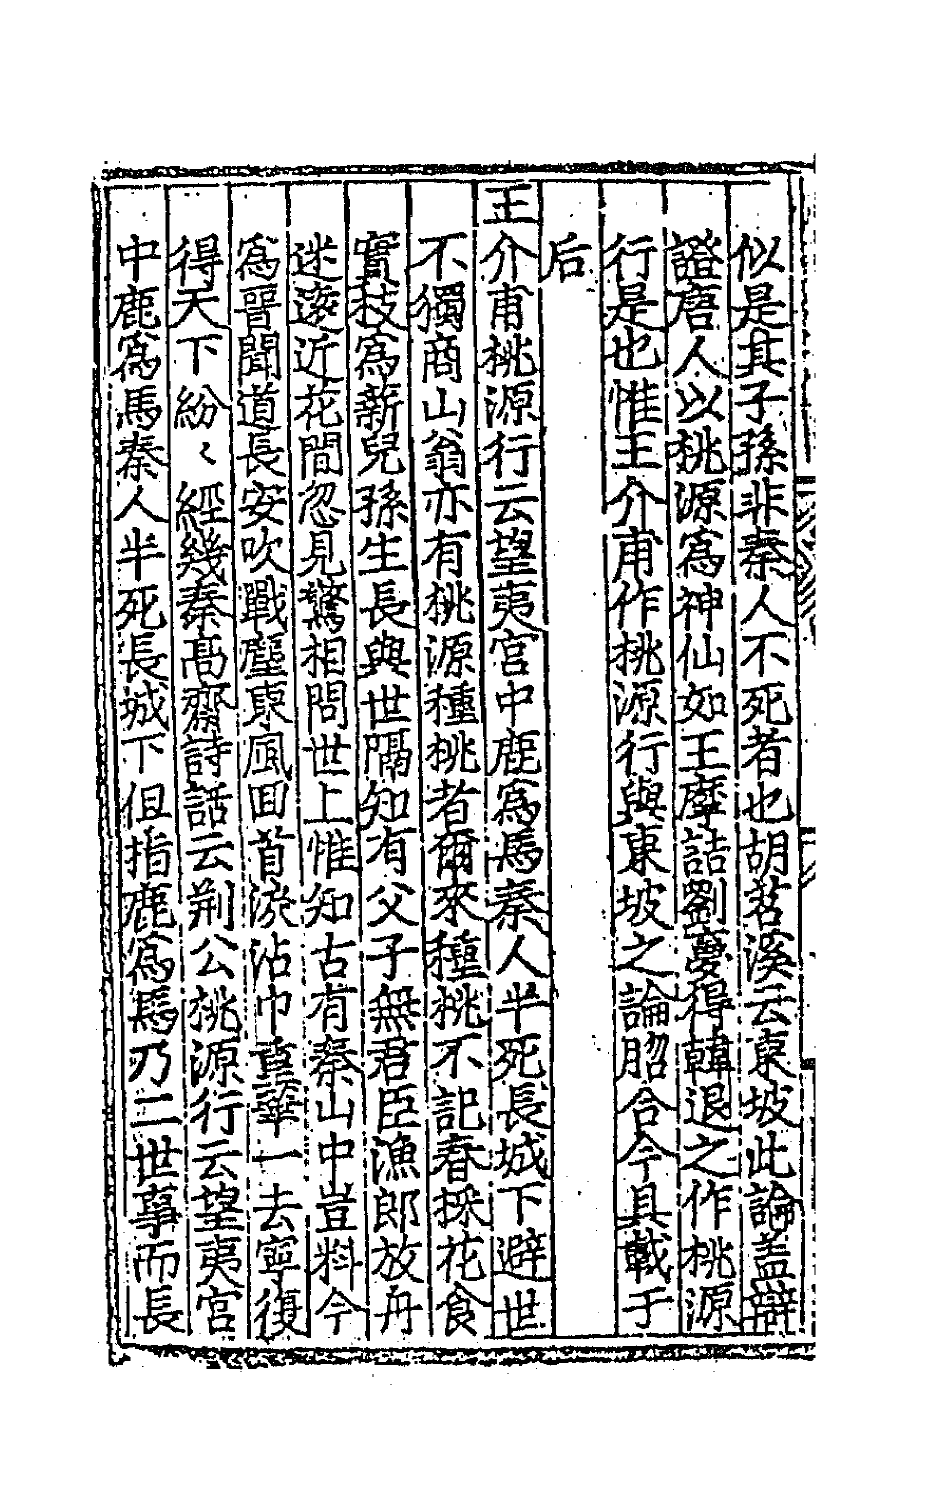 似是其子孫非秦人不死者也胡苕溪云東坡此論盖辯
證唐人以桃源爲神仙如王摩詰劉夢得韓退之作桃源
行是也惟王介甫作桃源行與東坡之論脗合今具載于
后
王介甫桃源行云望夷宮中鹿爲馬秦人半死長城下避世
不獨商山翁亦有桃源種桃者爾來種桃不記春採花食
實枝爲薪兒孫生長與世隔知有父子無君臣漁郎放舟
迷遠近花間忽見驚相問世上惟知古有秦山中豈料今
爲晉聞道長安吹戰塵東風回首淚沾巾重華一去寧復
得天下紛〻經幾秦高齋詩話云荆公桃源行云望夷宮
中鹿爲馬秦人半死長城下但指鹿爲馬乃二世事而長